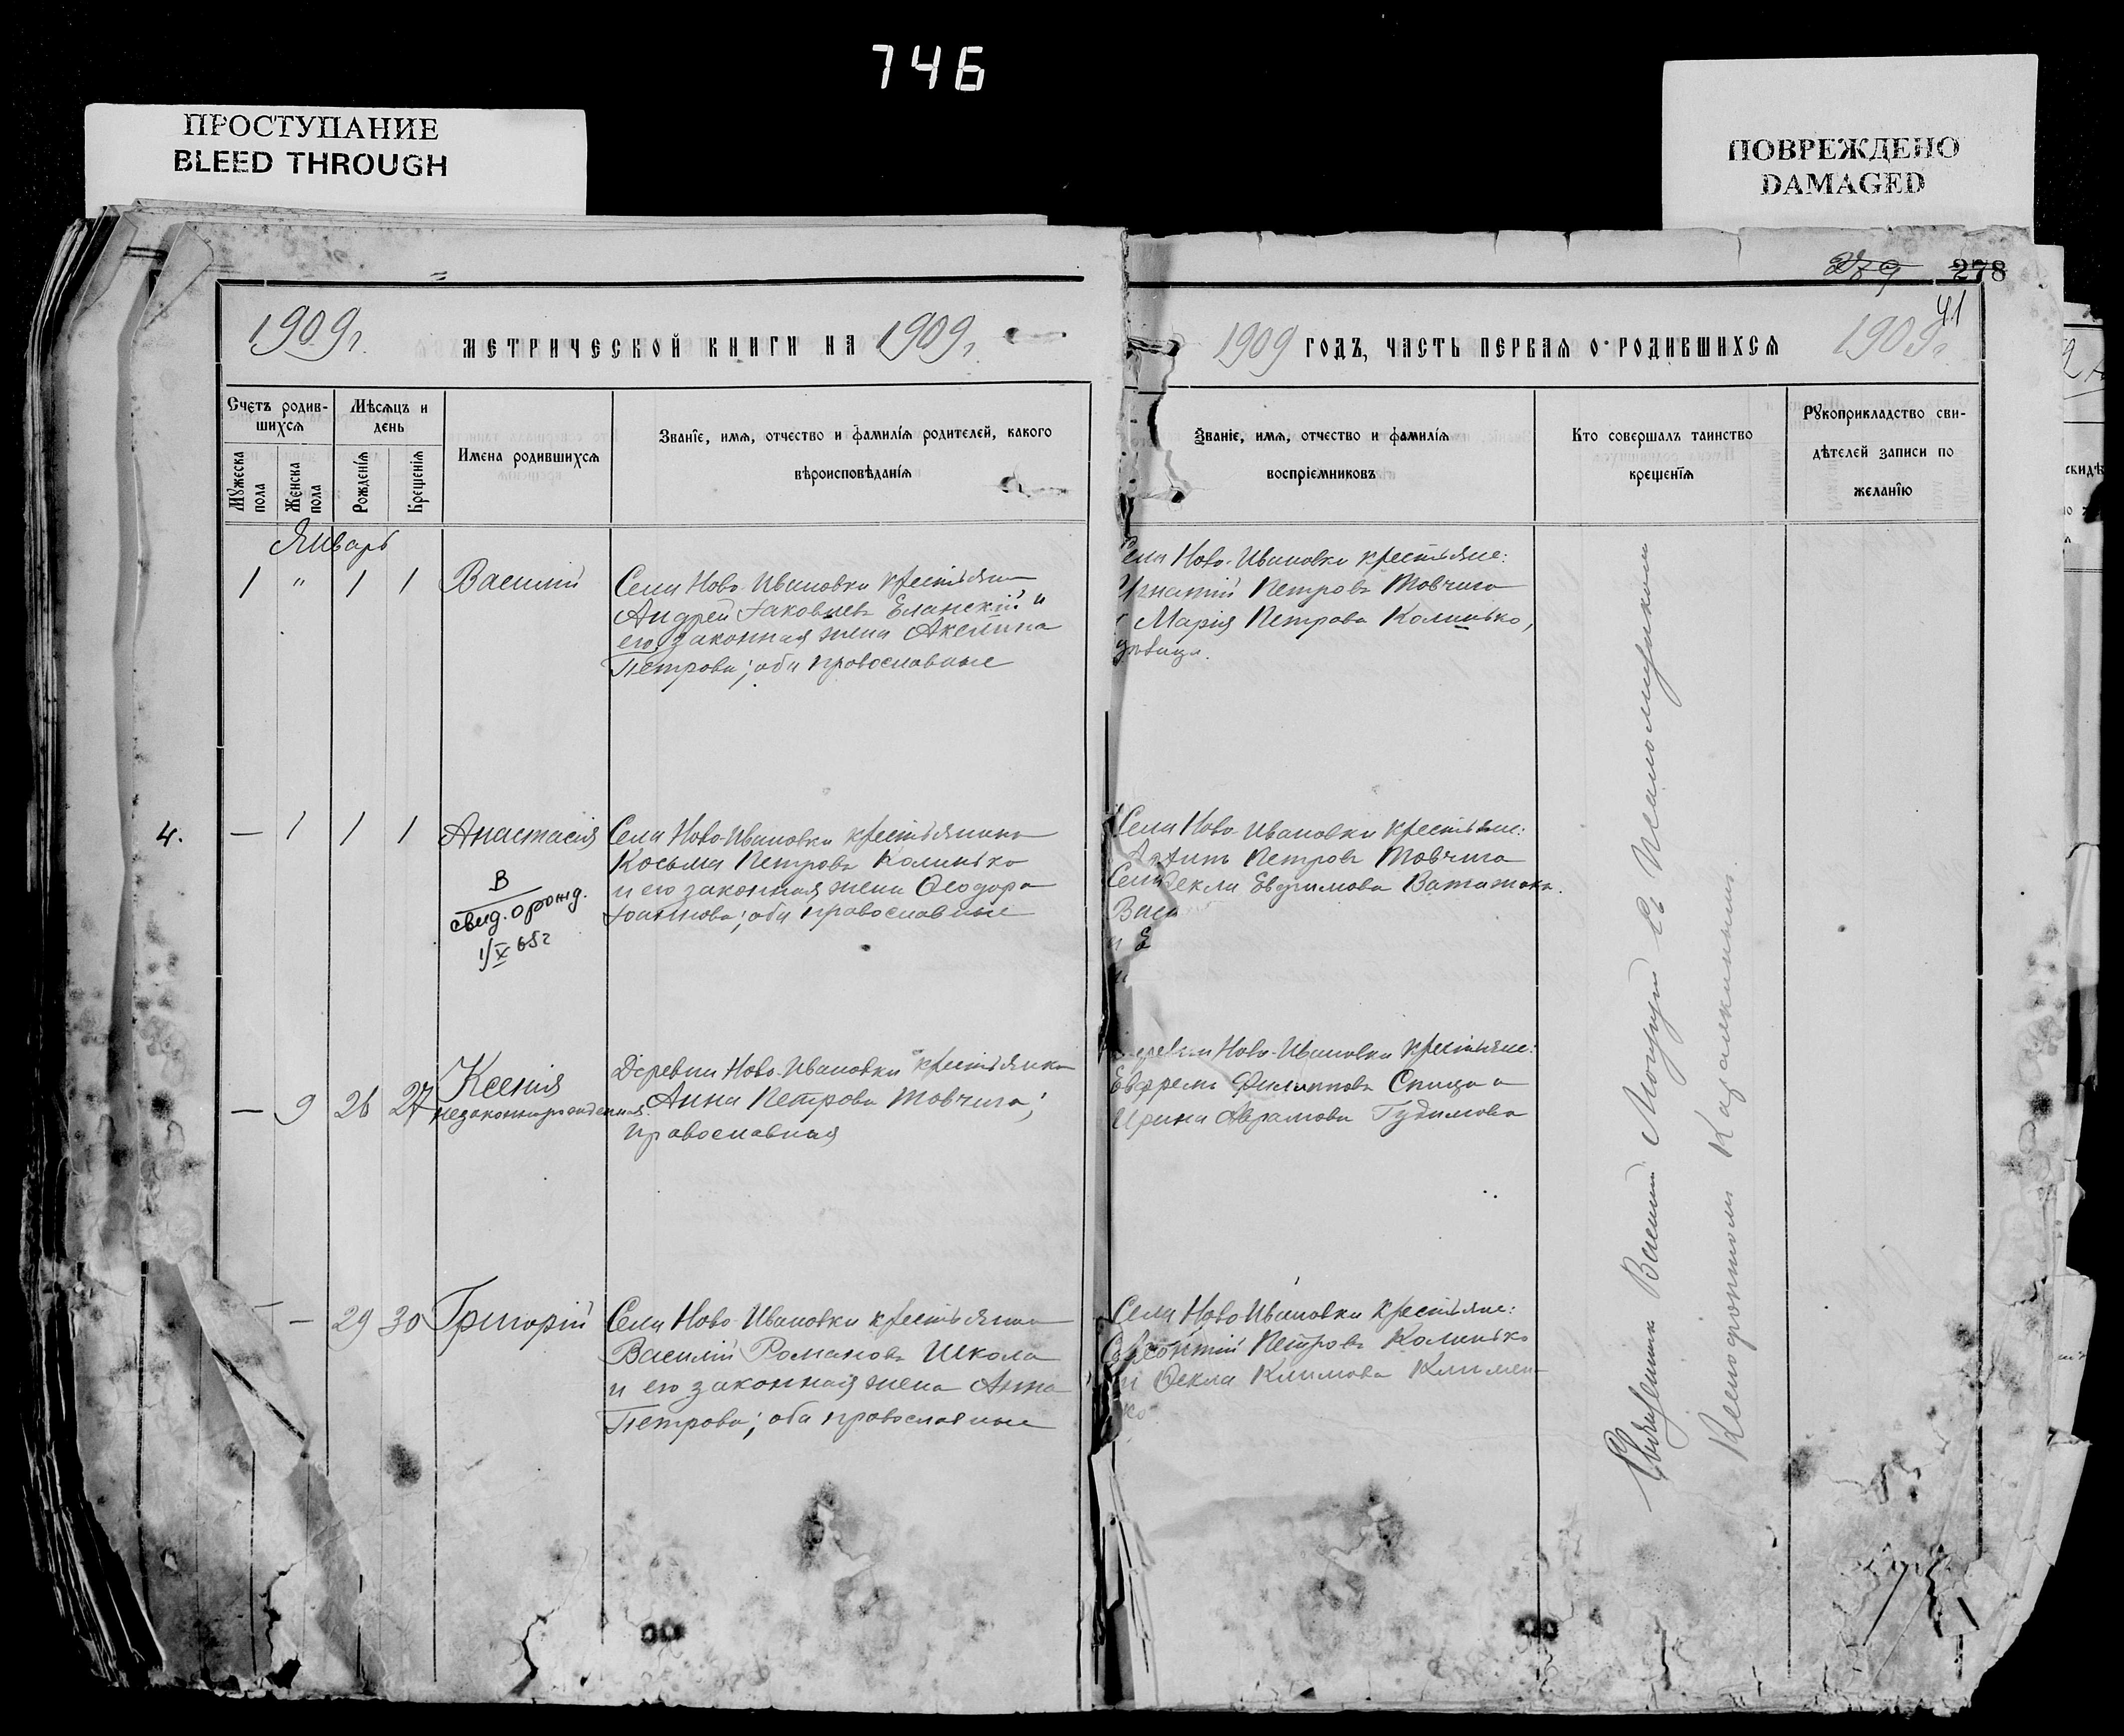 746
ПРОСТУПАНИЕ
BLEED THROUGH
ПОВРЕЖДЕНО
DAMAGED
279 278
41
1909 г. МЕТРИЧЕСКОЙ КНИГИ НА 1909 г.
1909 ГОДЪ, ЧАСТЬ ПЕРВАЯ О РОДИВШИХСЯ 1909 г.
Счетъ родив-
шихся
Мужеска пола
Женска пола
Мѣсяцъ и
день
Рожденія
Крещенія
Имена родившихся
Званіе, имя, отчество и фамилія родителей, какого
вѣроисповѣданія
Званіе, имя, отчество и фамилія
воспріемниковъ
Кто совершалъ таинство
крещенія
Рукоприкладство сви-
дѣтелей записи по
желанію
Январь
1 " 1 1 Василій
Села Ново-Ивановки крестьянинъ
Андрей Іаковлевъ Еланскій и
его законная жена Акелина
Петрова; оба православные
Села Ново-Ивановки крестьяне:
Игнатій Петровъ Товчига
Марія Петрова Калинько,
дѣвица.
4.
— 1 1 1 Анастасія
В
свид. о рожд.
1/X 65 г
Села Ново-Ивановки крестьянинъ
Косьма Петровъ Калинько
и его законная жена Ѳеодора
Іоаннова; оба православные
Села Ново-Ивановки крестьяне:
Петровъ Товчига
Ѳекла Евфимова
— 9 26 27 Ксенія
незаконнорожденная.
Деревни Ново-Ивановки крестьянка
Анна Петрова Товчига;
православная
Деревни Ново-Ивановки крестьяне:
Ефремъ Филипповъ Спица и
Ирина Аврамова Гудимова
— 29 30 Григорій
Села Ново-Ивановки крестьянинъ
Василій Романовъ Школа
и его законная жена Анна
Петрова; оба православные
Села Ново-Ивановки крестьяне:
Петровъ Калинько
и Ѳекла Климова Климен-
ко
Священник Василій Съ Псаломщикомъ